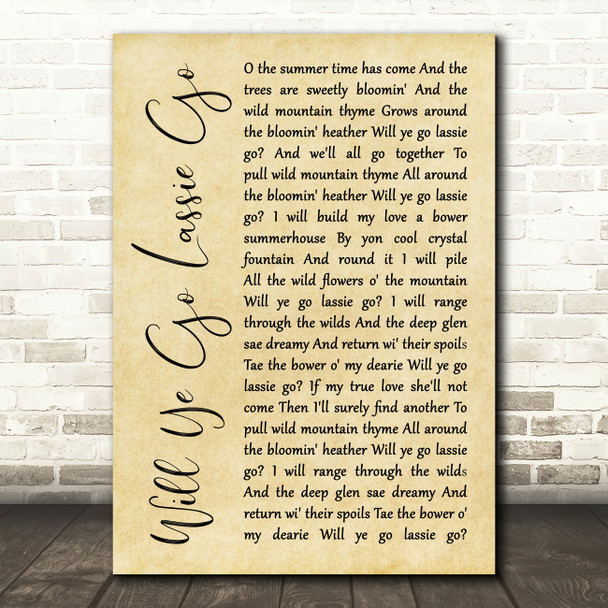 Will Ye Go Lassie Go
O the summer time has come And the
trees are sweetly bloomin' And the
wild mountain thyme Grows around
the bloomin' heather Will ye go lassie
go? And we'll all go together To
pull wild mountain thyme All around
the bloomin' heather Will ye go lassie
go? I will build my love a bower
summerhouse By yon cool crystal
fountain And round it I will pile
All the wild flowers o' the mountain
Will ye go lassie go? I will range
through the wilds And the deep glen
sae dreamy And return wi' their spoils
Tae the bower o' my dearie Will ye go
lassie go? If my true love she'll not
come Then I'll surely find another To
pull wild mountain thyme All around
the bloomin' heather Will ye go lassie
go? I will range through the wilds
And the deep glen sae dreamy And
return wi' their spoils Tae the bower o'
my dearie Will ye go lassie go?